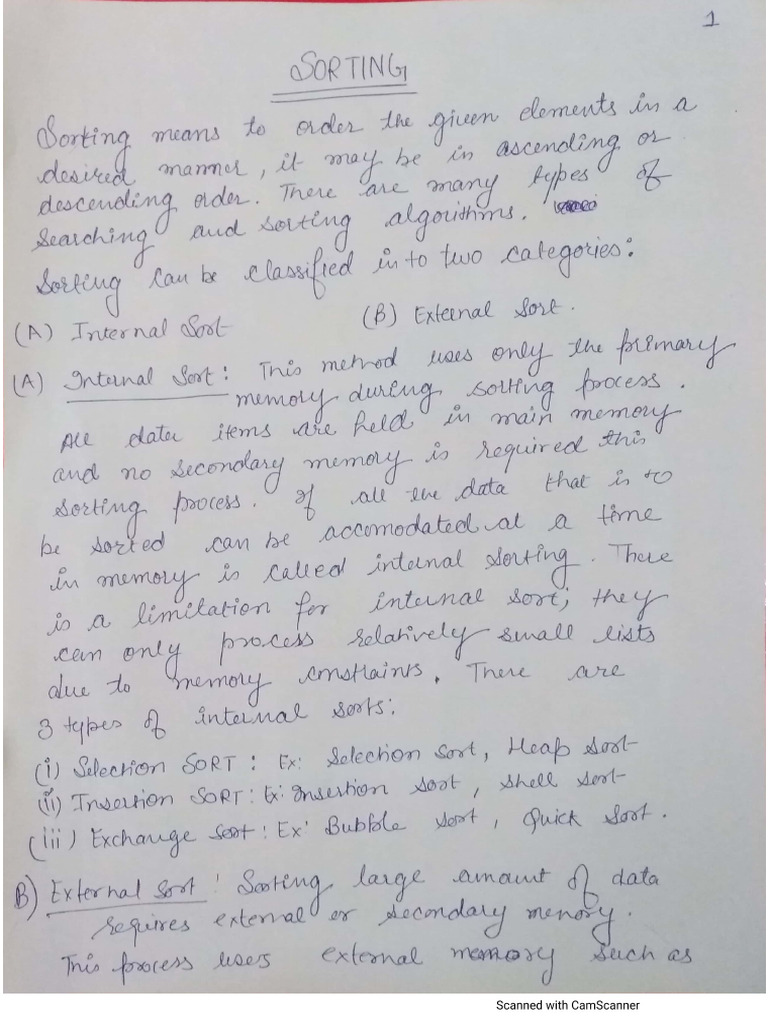 1
SORTING
Sorting means to order the given elements in a
desired manner, it may be in ascending or
descending order. There are many types of
Searching and sorting algorithms.
Sorting can be classified in to two categories:
(A) Internal Sort (B) External Sort.
(A) Internal Sort: This method uses only the primary
memory during sorting process.
All data items are held in main memory
and no secondary memory is required this
sorting process. If all the data that is to
be sorted can be accomodated at a time
in memory is called internal sorting. There
is a limitation for internal sort; they
can only process relatively small lists
due to memory constraints. There are
3 types of internal sorts:
(i) Selection SORT: Ex: Selection sort, Heap Sort
(ii) Insertion SORT: Ex: Insertion sort, Shell sort
(iii) Exchange sort: Ex: Bubble sort, Quick Sort.
B) External Sort: Sorting large amount of data
requires external or secondary memory.
This process uses external memory such as
Scanned with CamScanner